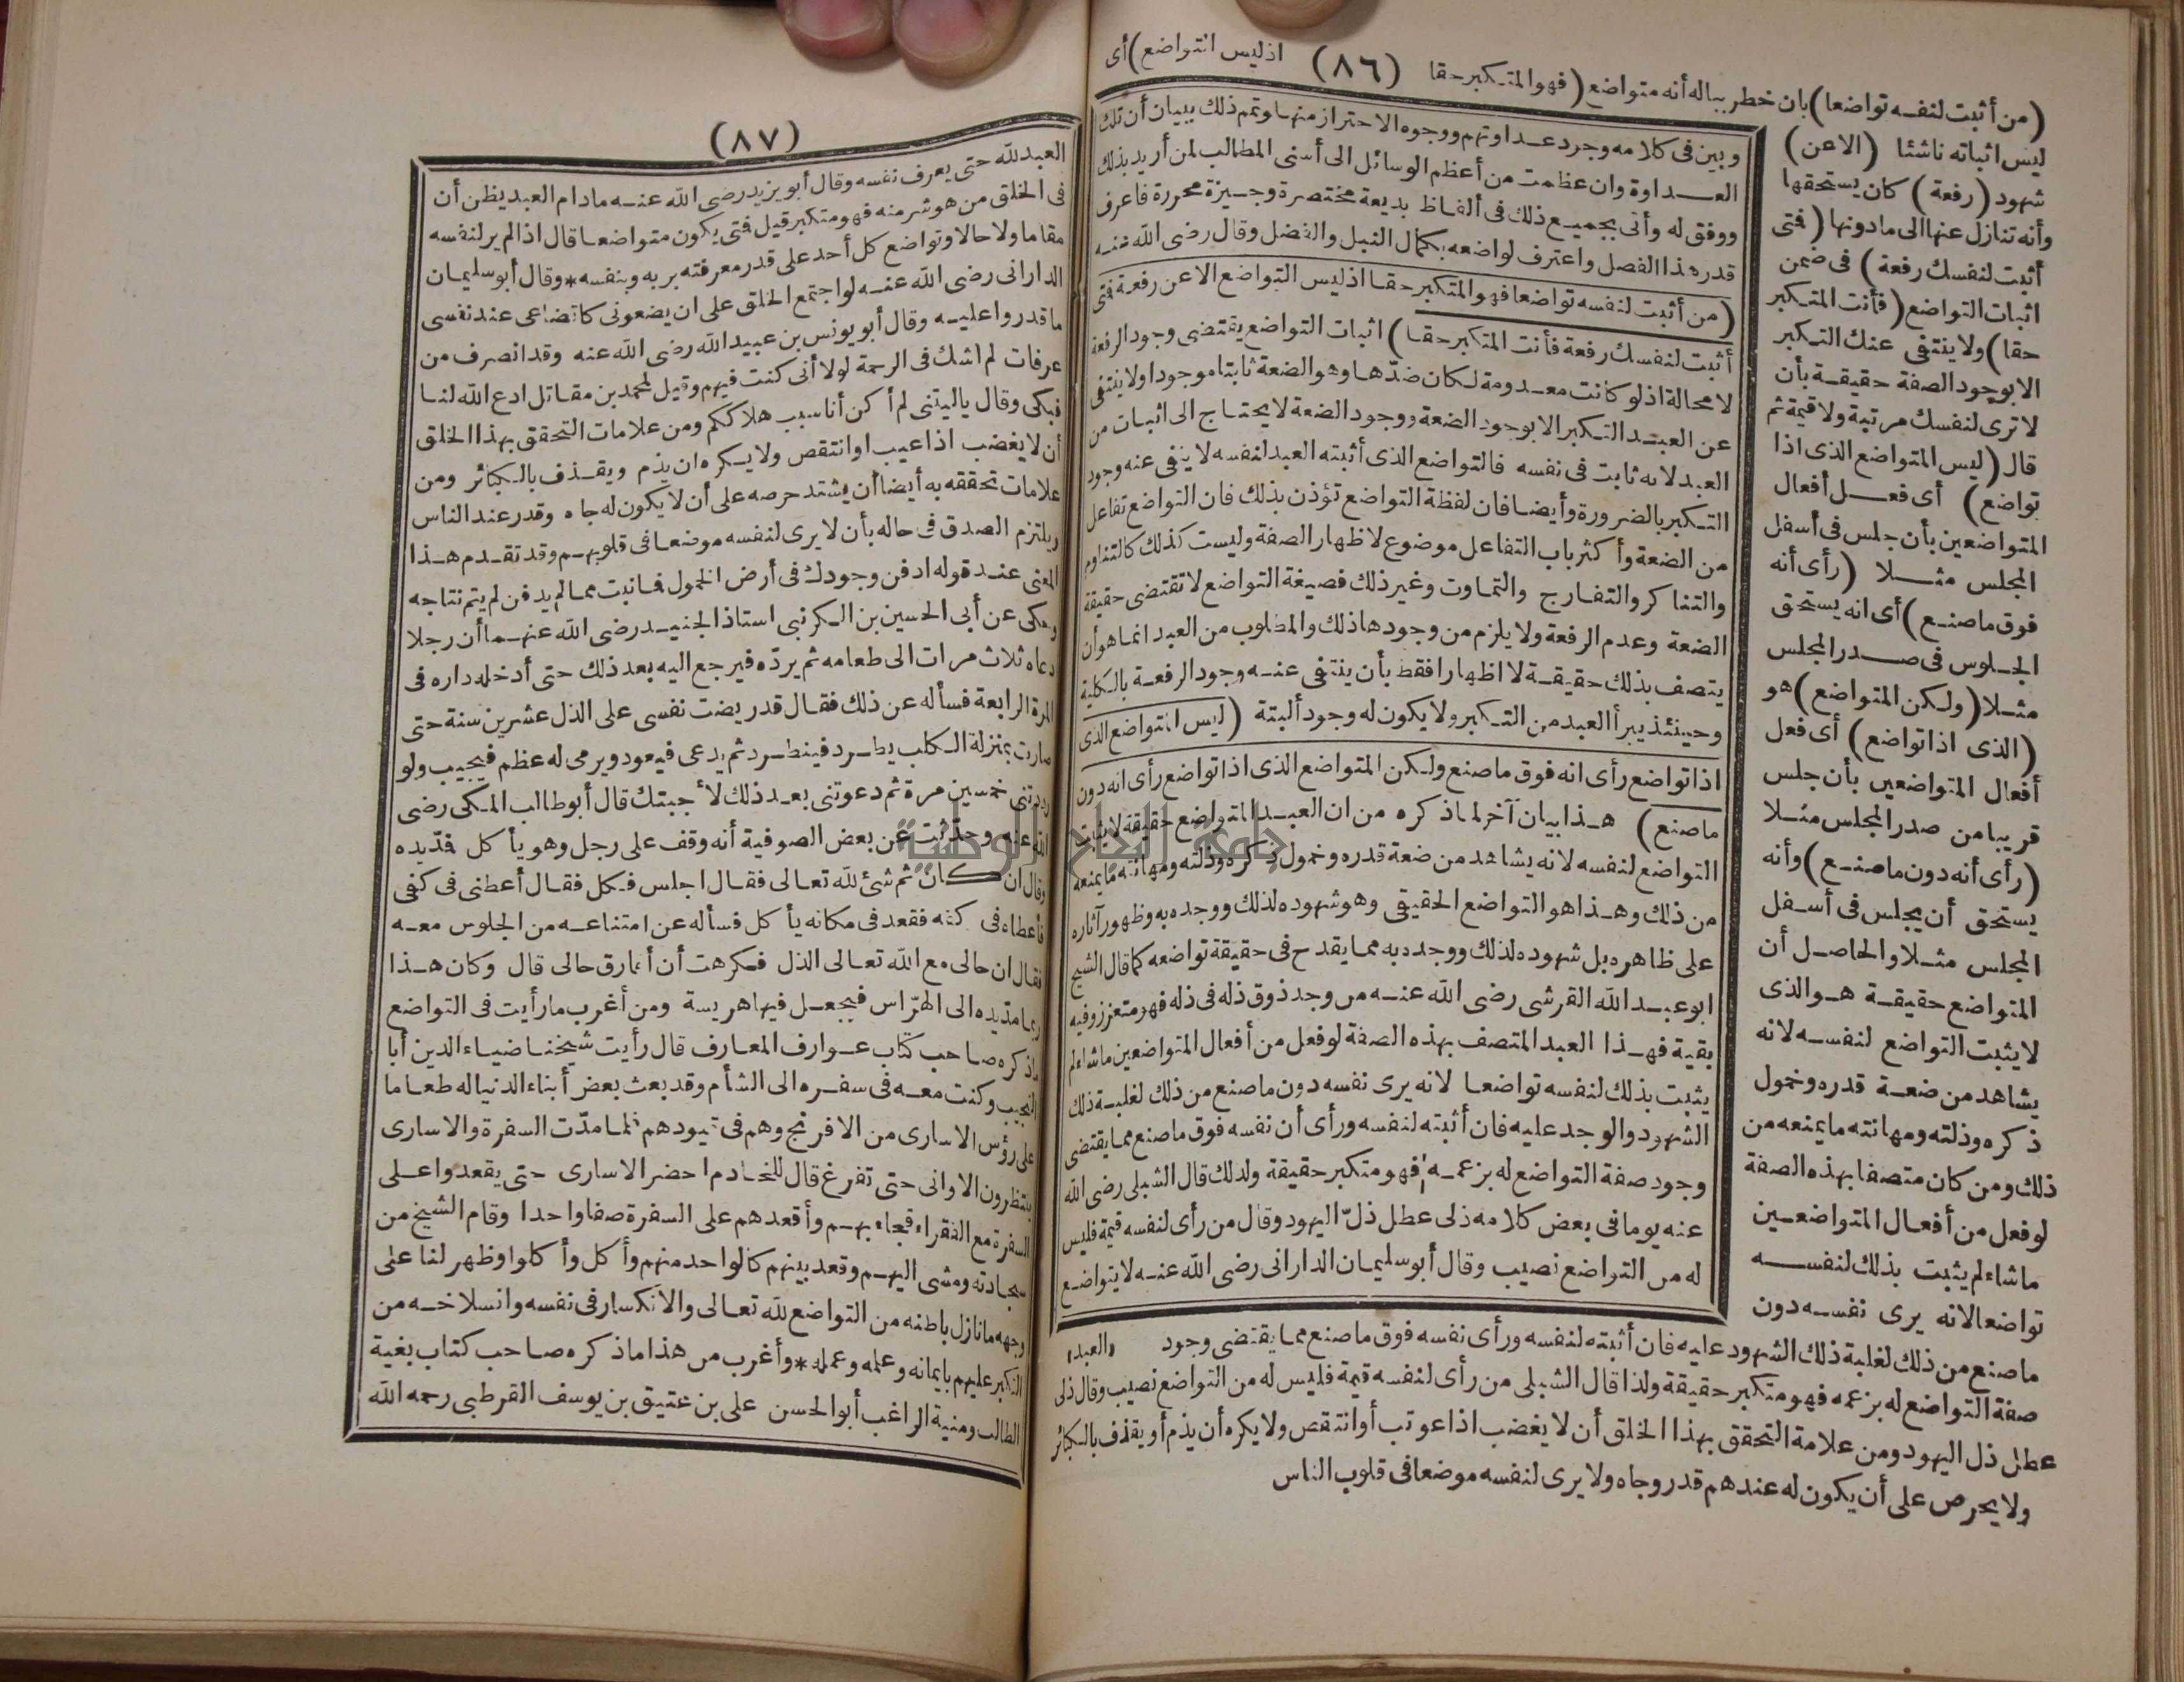 (٨٦)
(من أثبت لنفسه تواضعا) بان خطر بباله أنه متواضع (فهو المتكبر حقا اذ ليس التواضع) أى
ليس اثباته ناشئا (الا عن)
شهود (رفعة) كان يستحقها
وأنه تنازل عنها الى مادونها (فتى
أثبت لنفسك رفعة) فى ضمن
اثبات التواضع (فأنت المتكبر
حقا) ولا ينتفى عنك التكبر
الا بوجود الصفة حقيقة بأن
لا ترى لنفسك مرتبة ولا قيمة ثم
قال (ليس المتواضع الذى اذا
تواضع) أى فعل أفعال
المتواضعين بأن جلس فى أسفل
المجلس مثلا (رأى أنه
فوق ماصنع) أى انه يستحق
الجلوس فى صدر المجلس
مثلا (ولكن المتواضع) هو
(الذى اذا تواضع) أى فعل
أفعال المتواضعين بأن جلس
قريبا من صدر المجلس مثلا
(رأى أنه دون ماصنع) وأنه
يستحق أن يجلس فى أسفل
المجلس مثلا والحاصل أن
المتواضع حقيقة هو الذى
لا يثبت التواضع لنفسه لانه
يشاهد من ضعة قدره وخمول
ذكره وذلته ومهانته ما يمنعه من
ذلك ومن كان متصفا بهذه الصفة
لو فعل من أفعال المتواضعين
ماشاء لم يثبت بذلك لنفسه
تواضعا لانه يرى نفسه دون
ماصنع من ذلك لغلبة ذلك الشهود عليه فان أثبته لنفسه ورأى نفسه فوق ماصنع مما يقتضى وجود
صفة التواضع له بزعمه فهو متكبر حقيقة ولذا قال الشبلى من رأى لنفسه قيمة فليس له من التواضع نصيب وقال ذلى
عطل ذل اليهود ومن علامة التحقق بهذا الخلق أن لا يغضب اذا عوتب أو انتقص ولا يكره أن يذم أو يقذف بالكبائر
ولا يحرص على أن يكون له عندهم قدر وجاه ولا يرى لنفسه موضعا فى قلوب الناس
وبين فى كلامه وجود عداوتهم ووجوه الاحتراز منها وتمم ذلك ببيان أن تلك
العداوة وان عظمت من أعظم الوسائل الى أسنى المطالب لمن أريد بذلك
ووفق له وأتى بجميع ذلك فى ألفاظ بديعة مختصرة وجيزة محررة فاعرف
قدر هذا الفصل واعترف لواضعه بكمال النبل والفضل وقال رضى الله عنه
(من أثبت لنفسه تواضعا فهو المتكبر حقا اذ ليس التواضع الا عن رفعة فتى
أثبت لنفسك رفعة فأنت المتكبر حقا) اثبات التواضع يقتضى وجود الرفعة
لا محالة اذ لو كانت معدومة لكان ضدّها وهو الضعة ثابتا موجودا ولا ينتفى
عن العبد التكبر الا بوجود الضعة ووجود الضعة لا يحتاج الى اثبات من
العبد لانه ثابت فى نفسه فالتواضع الذى أثبته العبد لنفسه لا ينفى عنه وجود
التكبر بالضرورة وأيضا فان لفظة التواضع تؤذن بذلك فان التواضع تفاعل
من الضعة وأكثر باب التفاعل موضوع لاظهار الصفة وليست كذلك كالتناوم
والتناكر والتفارج والتماوت وغير ذلك فصيغة التواضع لا تقتضى حقيقة
الضعة وعدم الرفعة ولا يلزم من وجودها ذلك والمطلوب من العبد انما هو أن
يتصف بذلك حقيقة لا اظهارا فقط بأن ينتفى عنه وجود الرفعة بالكلية
وحينئذ يبرأ العبد من التكبر ولا يكون له وجود ألبتة (ليس المتواضع الذى
اذا تواضع رأى انه فوق ماصنع ولكن المتواضع الذى اذا تواضع رأى انه دون
ماصنع) هذا بيان آخر لما ذكره من ان العبد المتواضع حقيقة لا يثبت
التواضع لنفسه لانه يشاهد من ضعة قدره وخمول ذكره وذلته ومهانته ما يمنعه
من ذلك وهذا هو التواضع الحقيقى وهو شهوده لذلك ووجده به وظهور آثاره
على ظاهره بل شهوده لذلك ووجده به مما يقدح فى حقيقة تواضعه كما قال الشيخ
ابو عبد الله القرشى رضى الله عنه من وجد ذوق ذله فى ذله فهو متعزز وفيه
بقية فهذا العبد المتصف بهذه الصفة لو فعل من أفعال المتواضعين ماشاء لم
يثبت بذلك لنفسه تواضعا لانه يرى نفسه دون ماصنع من ذلك لغلبة ذلك
الشهود والوجد عليه فان أثبته لنفسه ورأى أن نفسه فوق ماصنع مما يقتضى
وجود صفة التواضع له بزعمه فهو متكبر حقيقة ولذلك قال الشبلى رضى الله
عنه يوما فى بعض كلامه ذلى عطل ذلّ اليهود وقال من رأى لنفسه قيمة فليس
له من التواضع نصيب وقال أبو سليمان الدارانى رضى الله عنه لا يتواضع
«العبد»
(٨٧)
العبد لله حتى يعرف نفسه وقال أبو يزيد رضى الله عنه مادام العبد يظن أن
فى الخلق من هو شر منه فهو متكبر قيل فتى يكون متواضعا قال اذا لم ير لنفسه
مقاما ولا حالا وتواضع كل أحد على قدر معرفته بربه وبنفسه * وقال أبو سليمان
الدارانى رضى الله عنه لو اجتمع الخلق على ان يضعونى كاتضاعى عند نفسى
ما قدروا عليه وقال أبو يونس بن عبيد الله رضى الله عنه وقد انصرف من
عرفات لم اشك فى الرحمة لولا أنى كنت فيهم وقيل لمحمد بن مقاتل ادع الله لنا
فبكى وقال ياليتنى لم أكن أنا سبب هلاككم ومن علامات التحقق بهذا الخلق
أن لا يغضب اذا عيب او انتقص ولا يكره ان يذم ويقذف بالكبائر ومن
علامات تحققه به أيضا أن يشتد حرصه على أن لا يكون له جاه وقدر عند الناس
ويلتزم الصدق فى حاله بأن لا يرى لنفسه موضعا فى قلوبهم وقد تقدم هذا
المعنى عند قوله ادفن وجودك فى أرض الخمول فما نبت مما لم يدفن لم يتم نتاجه
وحكى عن أبى الحسين بن الكرنبى استاذ الجنيد رضى الله عنهما أن رجلا
دعاه ثلاث مرات الى طعامه ثم يردّه فيرجع اليه بعد ذلك حتى أدخله داره فى
المرة الرابعة فسأله عن ذلك فقال قد ريضت نفسى على الذل عشرين سنة حتى
صارت بمنزلة الكلب يطرد فينطرد ثم يدعى فيعود ويرمى له عظم فيجيب ولو
رددتنى خمسين مرة ثم دعوتنى بعد ذلك لأجبتك قال أبو طالب المكى رضى
الله عنه وحدّثت عن بعض الصوفية أنه وقف على رجل وهو يأكل فدّيده
وقال ان كان ثم شئ لله تعالى فقال اجلس فكل فقال أعطنى فى كفى
فأعطاه فى كفه فقعد فى مكانه يأكل فسأله عن امتناعه من الجلوس معه
فقال ان حالى مع الله تعالى الذل فكرهت أن أفارق حالى قال وكان هذا
ربما مدّيده الى الهرّاس فيجعل فيها هريسة ومن أغرب ما رأيت فى التواضع
ماذكره صاحب كتاب عوارف المعارف قال رأيت شيخنا ضياء الدين أبا
النجيب وكنت معه فى سفره الى الشأم وقد بعث بعض أبناء الدنيا له طعاما
على رؤس الاسارى من الافرنج وهم فى قيودهم فلما مدّت السفرة والاسارى
ينتظرون الاوانى حتى تفرغ قال للخادم احضر الاسارى حتى يقعدوا على
السفرة مع الفقراء فجاء بهم وأقعدهم على السفرة صفا واحدا وقام الشيخ من
سجادته ومشى اليهم وقعد بينهم كالواحد منهم وأكل وأكلوا وظهر لنا على
وجهه ما نازل باطنه من التواضع لله تعالى والانكسار فى نفسه وانسلاخه من
التكبر عليهم بايمانه وعلمه وعمله * وأغرب من هذا ماذكره صاحب كتاب بغية
الطالب ومنية الراغب أبو الحسن على بن عتيق بن يوسف القرطبى رحمه الله
جامعة النجاح الوطنية